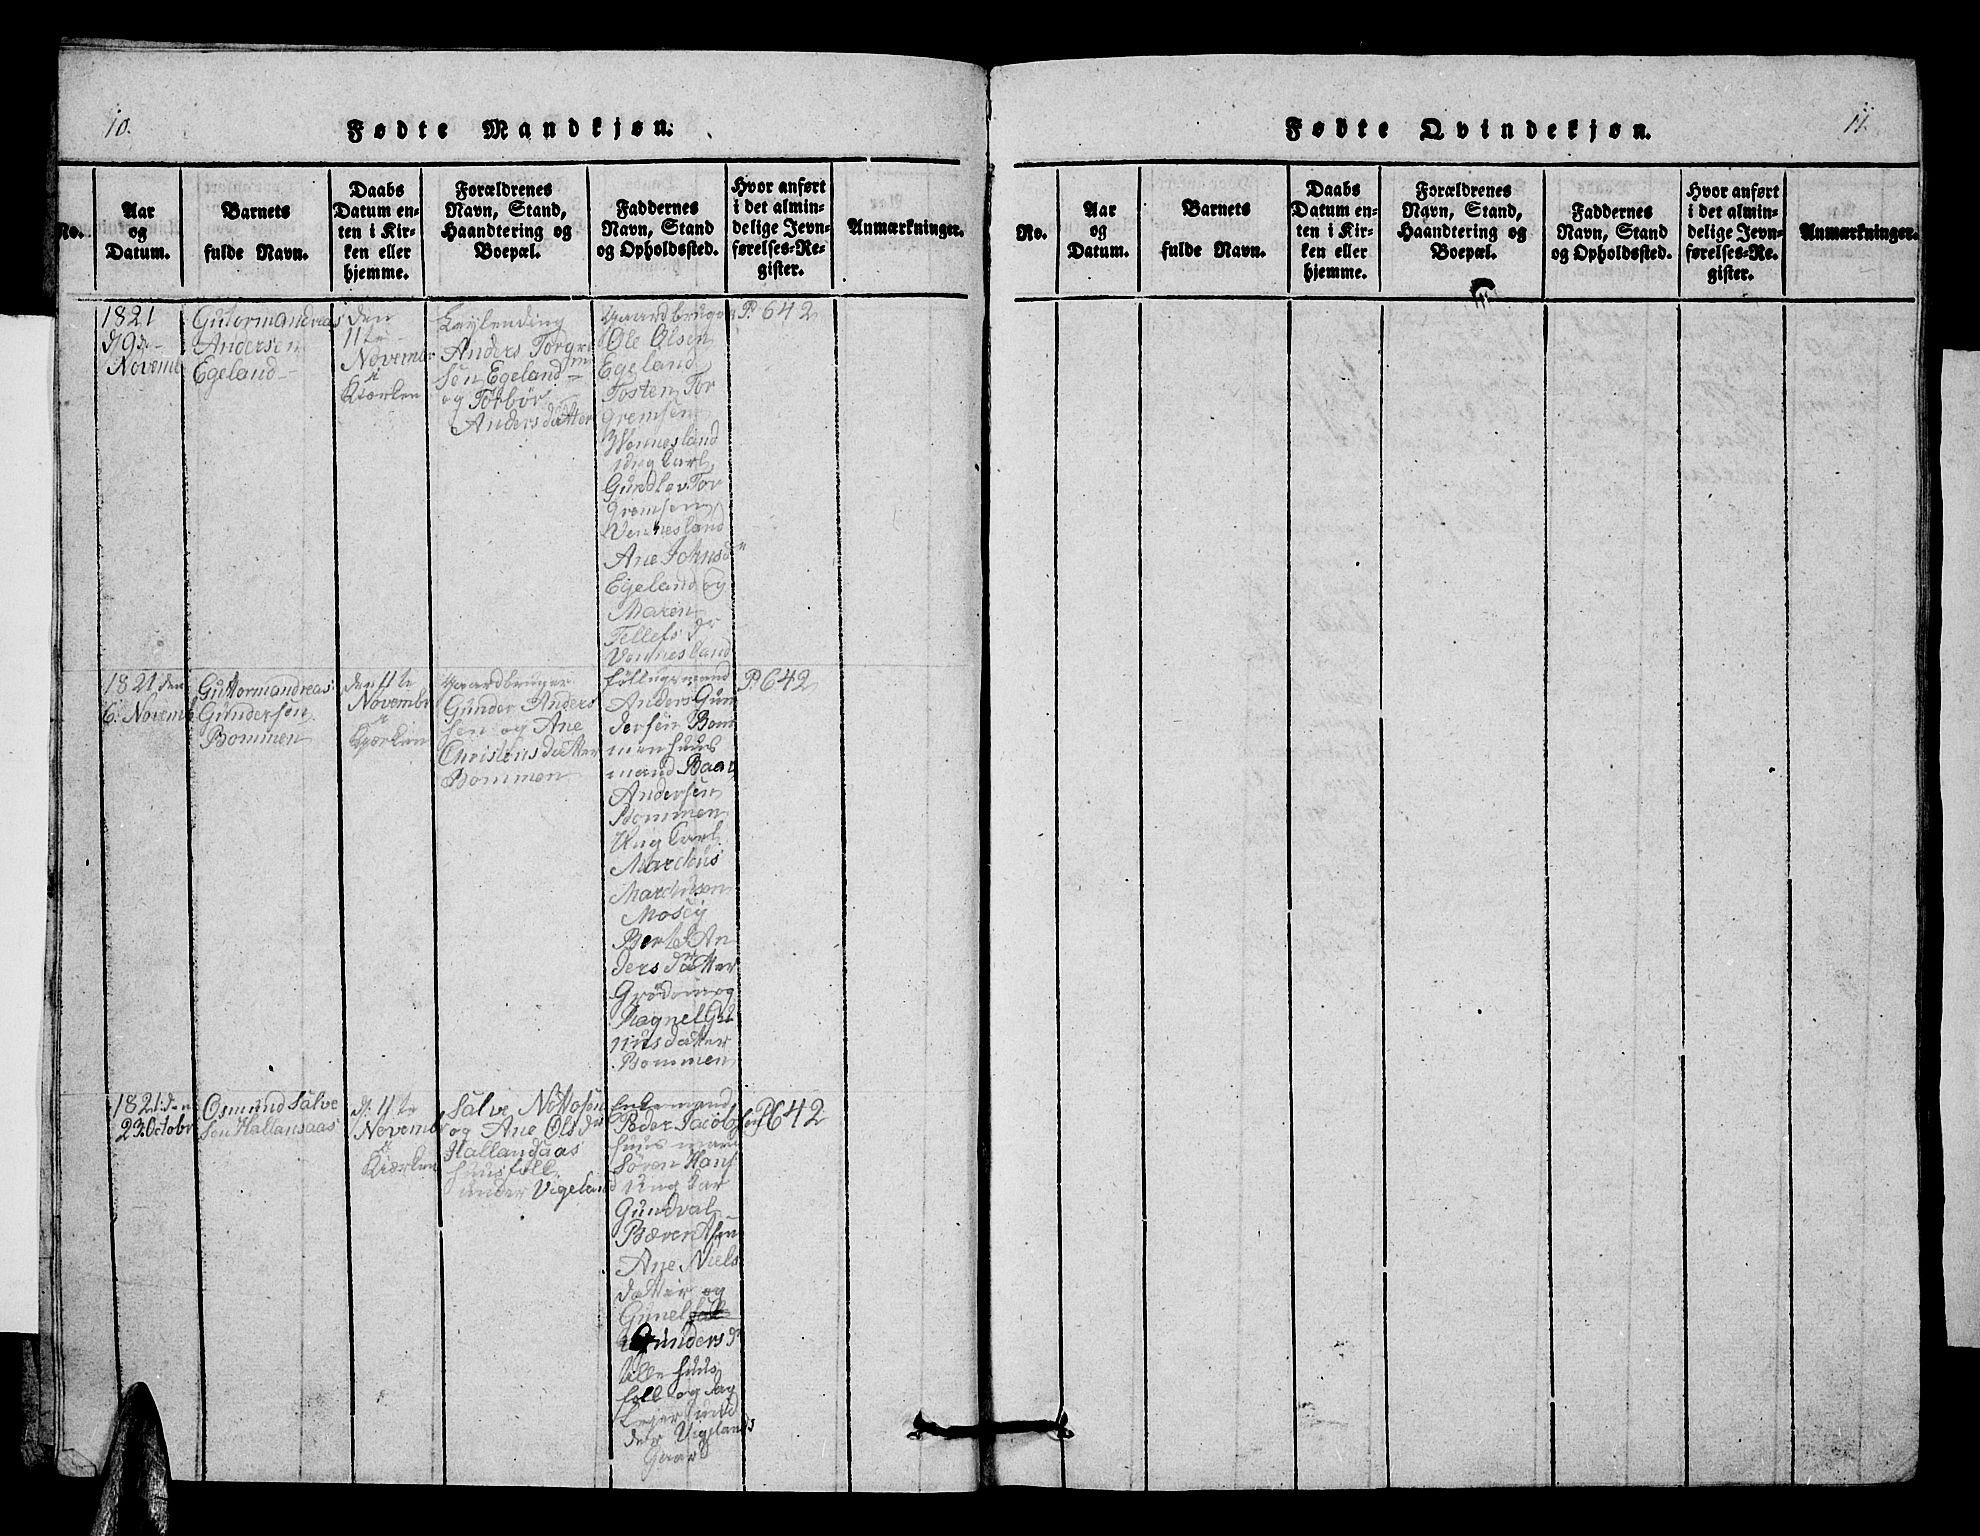 10.
Fødte Mandkjøn.
No.
Aar
og
Datum.
Barnets
fulde Navn.
Daabs
Datum en-
ten i Kir-
ken eller
hjemme.
Forældrenes
Navn, Stand,
Haandtering og
Boepæl.
Faddernes
Navn, Stand
og Opholdssted.
Hvor anført
i det almin-
delige Jevn-
førelses-Re-
gister.
Anmærkninger.
1821
Novemb
Gutormandreas
Andersen
Egeland
den
11te
Novembr
Kiærken
Leylending
Anders Torgre
sen Egeland
og Torbør
Andersdatter
Gaardbruger
Ole Olsen
Egeland
Tosten Tor
Gremsen
Vennesland
ung Carl
Gundlev Tor
Gremsen
Vennesland
Ane Johnsdr
Egeland og
Maren
Tellefsdr
Vennesland
P. 642
1821 den
6. Novemb
Guttormandreas
Gundersen
Bommen
den 11te
Novembr
Kiærken
Gaardbruger
Gunder Anders
sen og Ane
Christensdatter
Bommen
Anders Gun
dersen Bom
men huus
mand Baar
Andersen
Bommen
Ung Carl
Marchus
Marchusen
Mosey
Berte An
dersdatter
Ragnel
nusdatter
Bommen
P. 642
1821 den
23 Octobr
Osmund Salve
sen Hallansaas
d. 11te
Novembr
Kiærken
Salve Nottosen
og Ane Olsdr
Hallandsaas
huusfolk
under Vigeland
Enkemand
Peder Jacob
sen
huusmand
Søren Hans
ung Kar
Gundval
Ane Niels
datter og
Gunel
Gundersdr
alle huus
folk og dag
Lejer und
der Vigelands
Gaard
P 642
11.
Fødte Qvindekjøn.
No.
Aar
og
Datum.
Barnets
fulde Navn.
Daabs
Datum en-
ten i Kir-
ken eller
hjemme.
Forældrenes
Navn, Stand,
Haandtering og
Boepæl.
Faddernes
Navn, Stand
og Opholdssted.
Hvor anført
i det almin-
delige Jevn-
førelses-Re-
gister.
Anmærkninger.